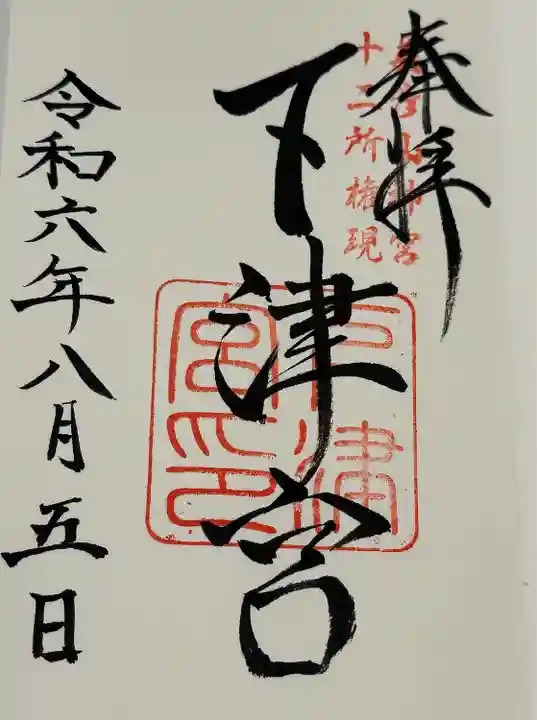 奉拝
十二所権現
下津宮
下津宮印
令和六年八月五日